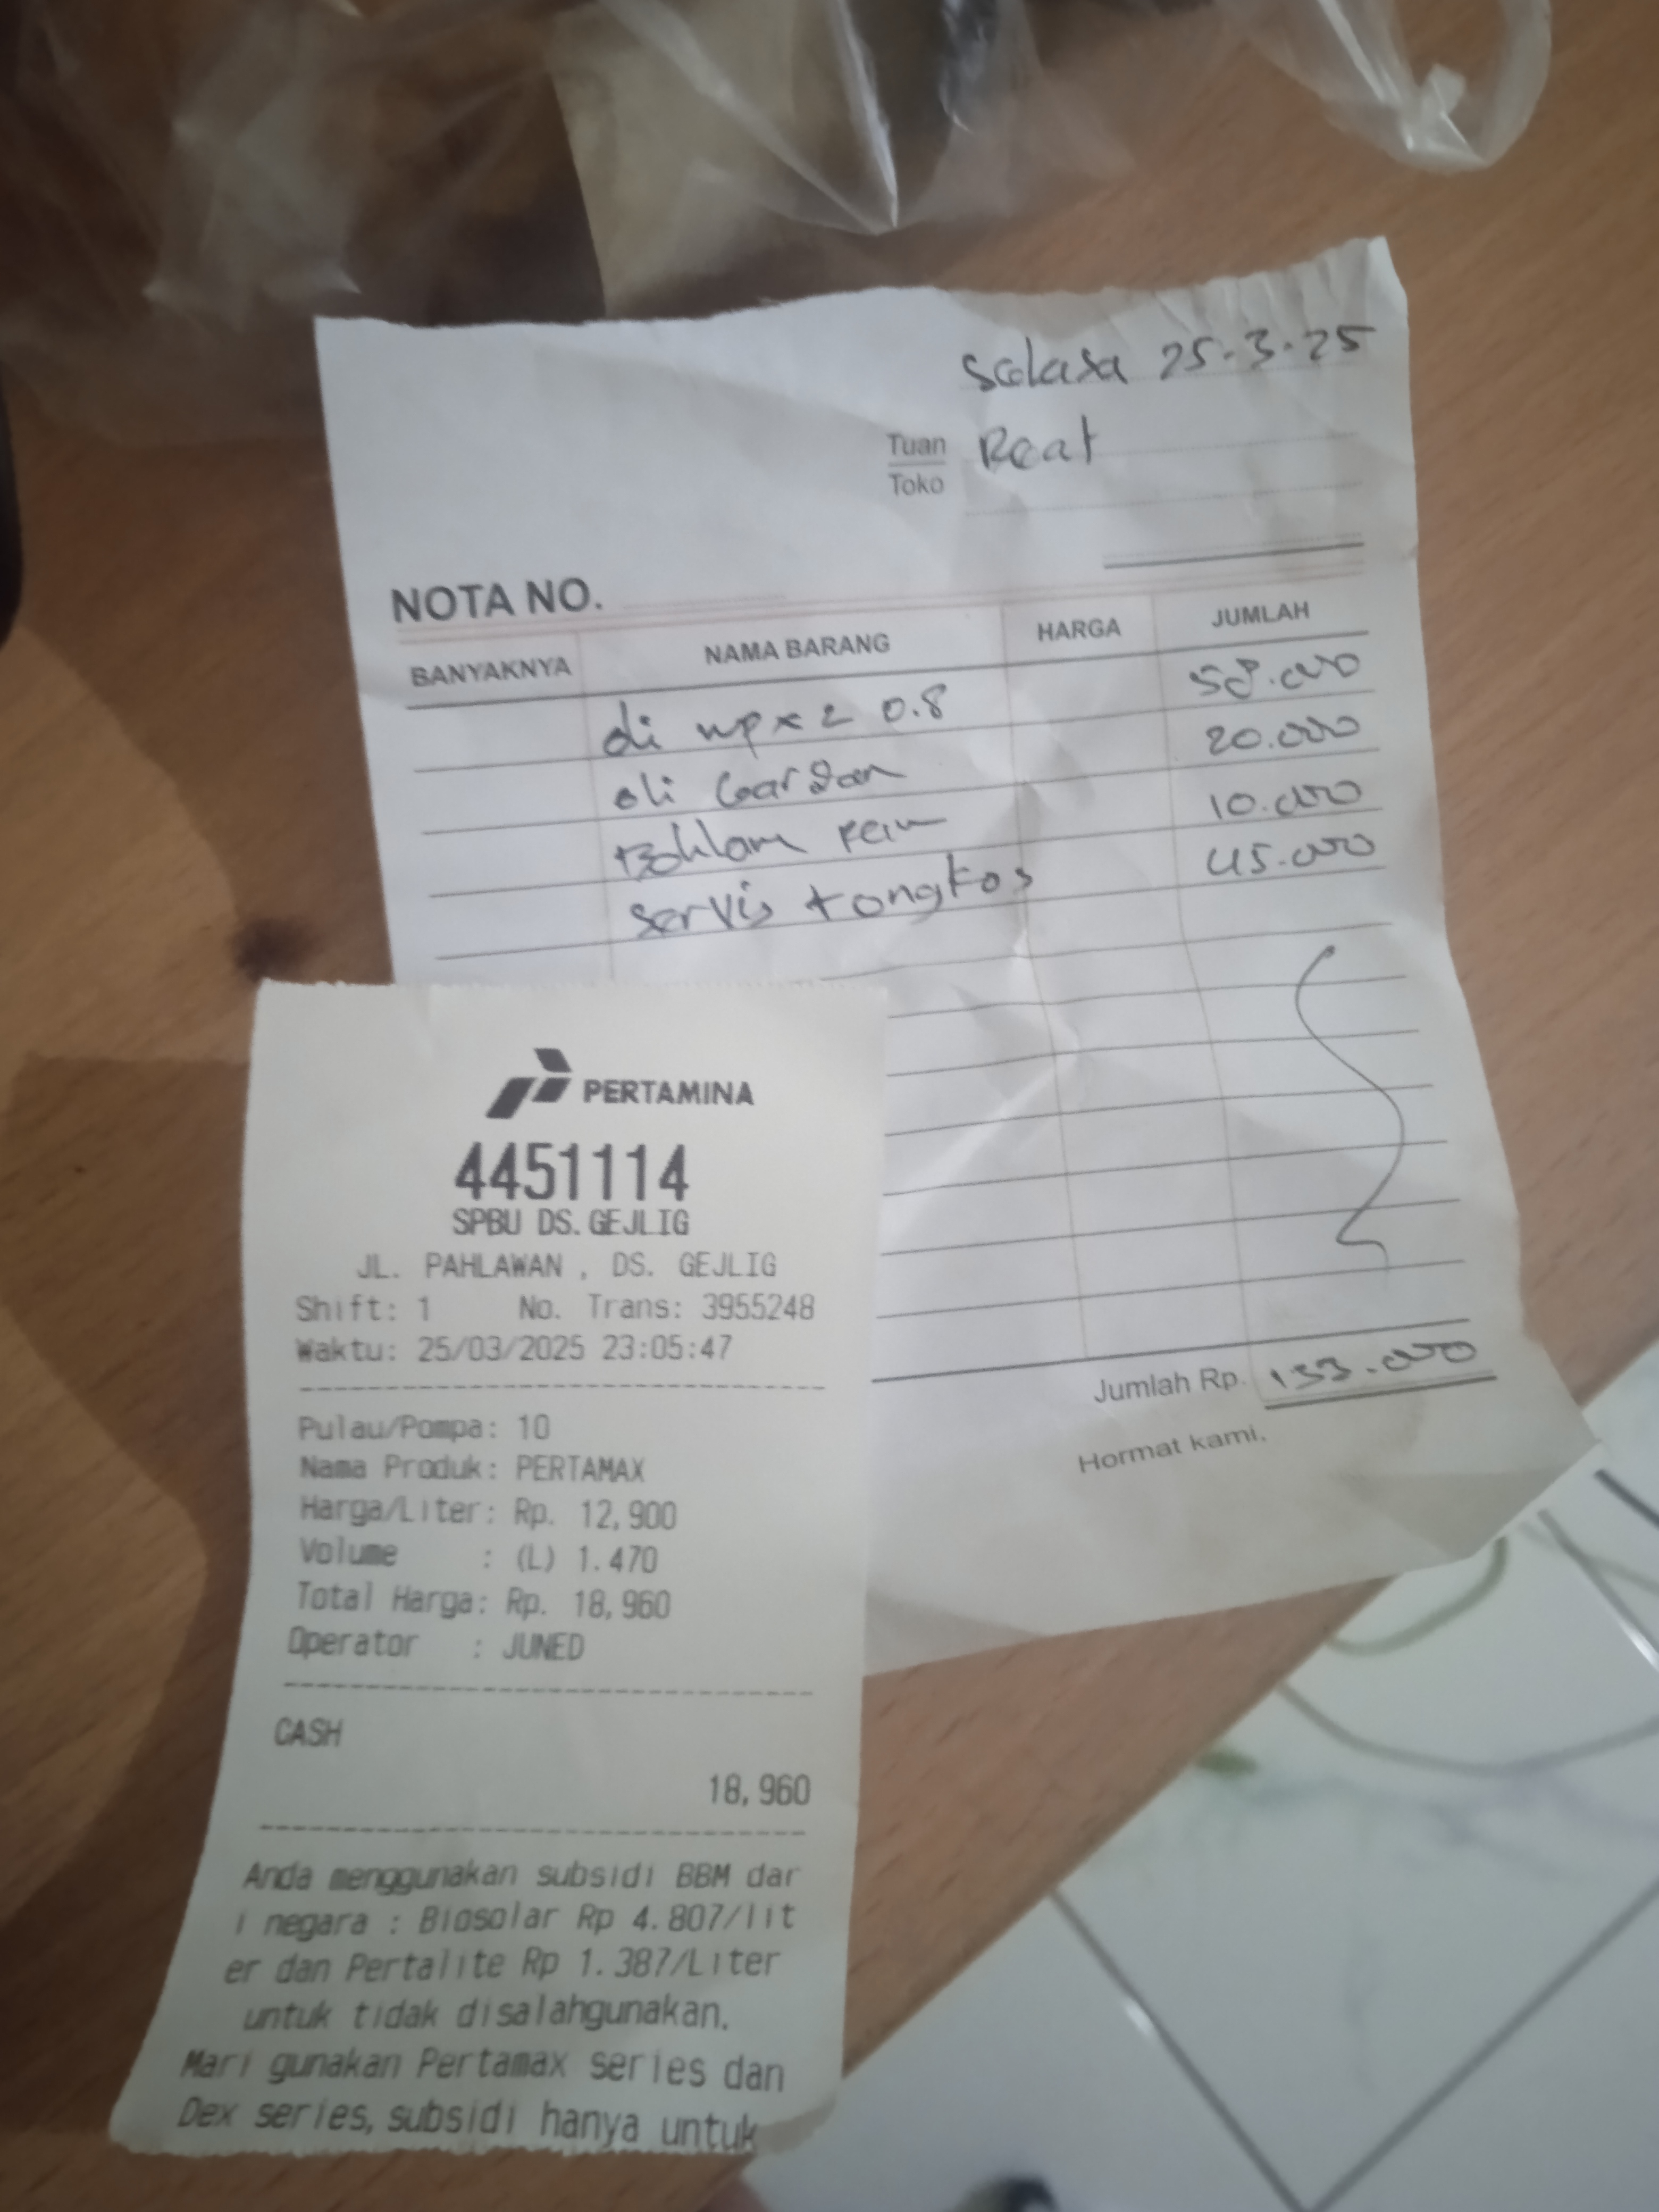 Selasa 25-3-25
Tuan Beat
Toko
NOTA NO.
BANYAKNYA NAMA BARANG HARGA JUMLAH
oli mpx 2 0.8 58.000
oli Gardan 20.000
Bohlam rem 10.000
servis + ongkos 45.000
Jumlah Rp. 133.000
Hormat kami,
PERTAMINA
4451114
SPBU DS. GEJLIG
JL. PAHLAWAN , DS. GEJLIG
Shift: 1 No. Trans: 3955248
Waktu: 25/03/2025 23:05:47
Pulau/Pompa: 10
Nama Produk: PERTAMAX
Harga/Liter: Rp. 12,900
Volume : (L) 1.470
Total Harga: Rp. 18,960
Operator : JUNED
CASH
18,960
Anda menggunakan subsidi BBM dar
i negara : Biosolar Rp 4.807/lit
er dan Pertalite Rp 1.387/Liter
untuk tidak disalahgunakan.
Mari gunakan Pertamax series dan
Dex series, subsidi hanya untuk